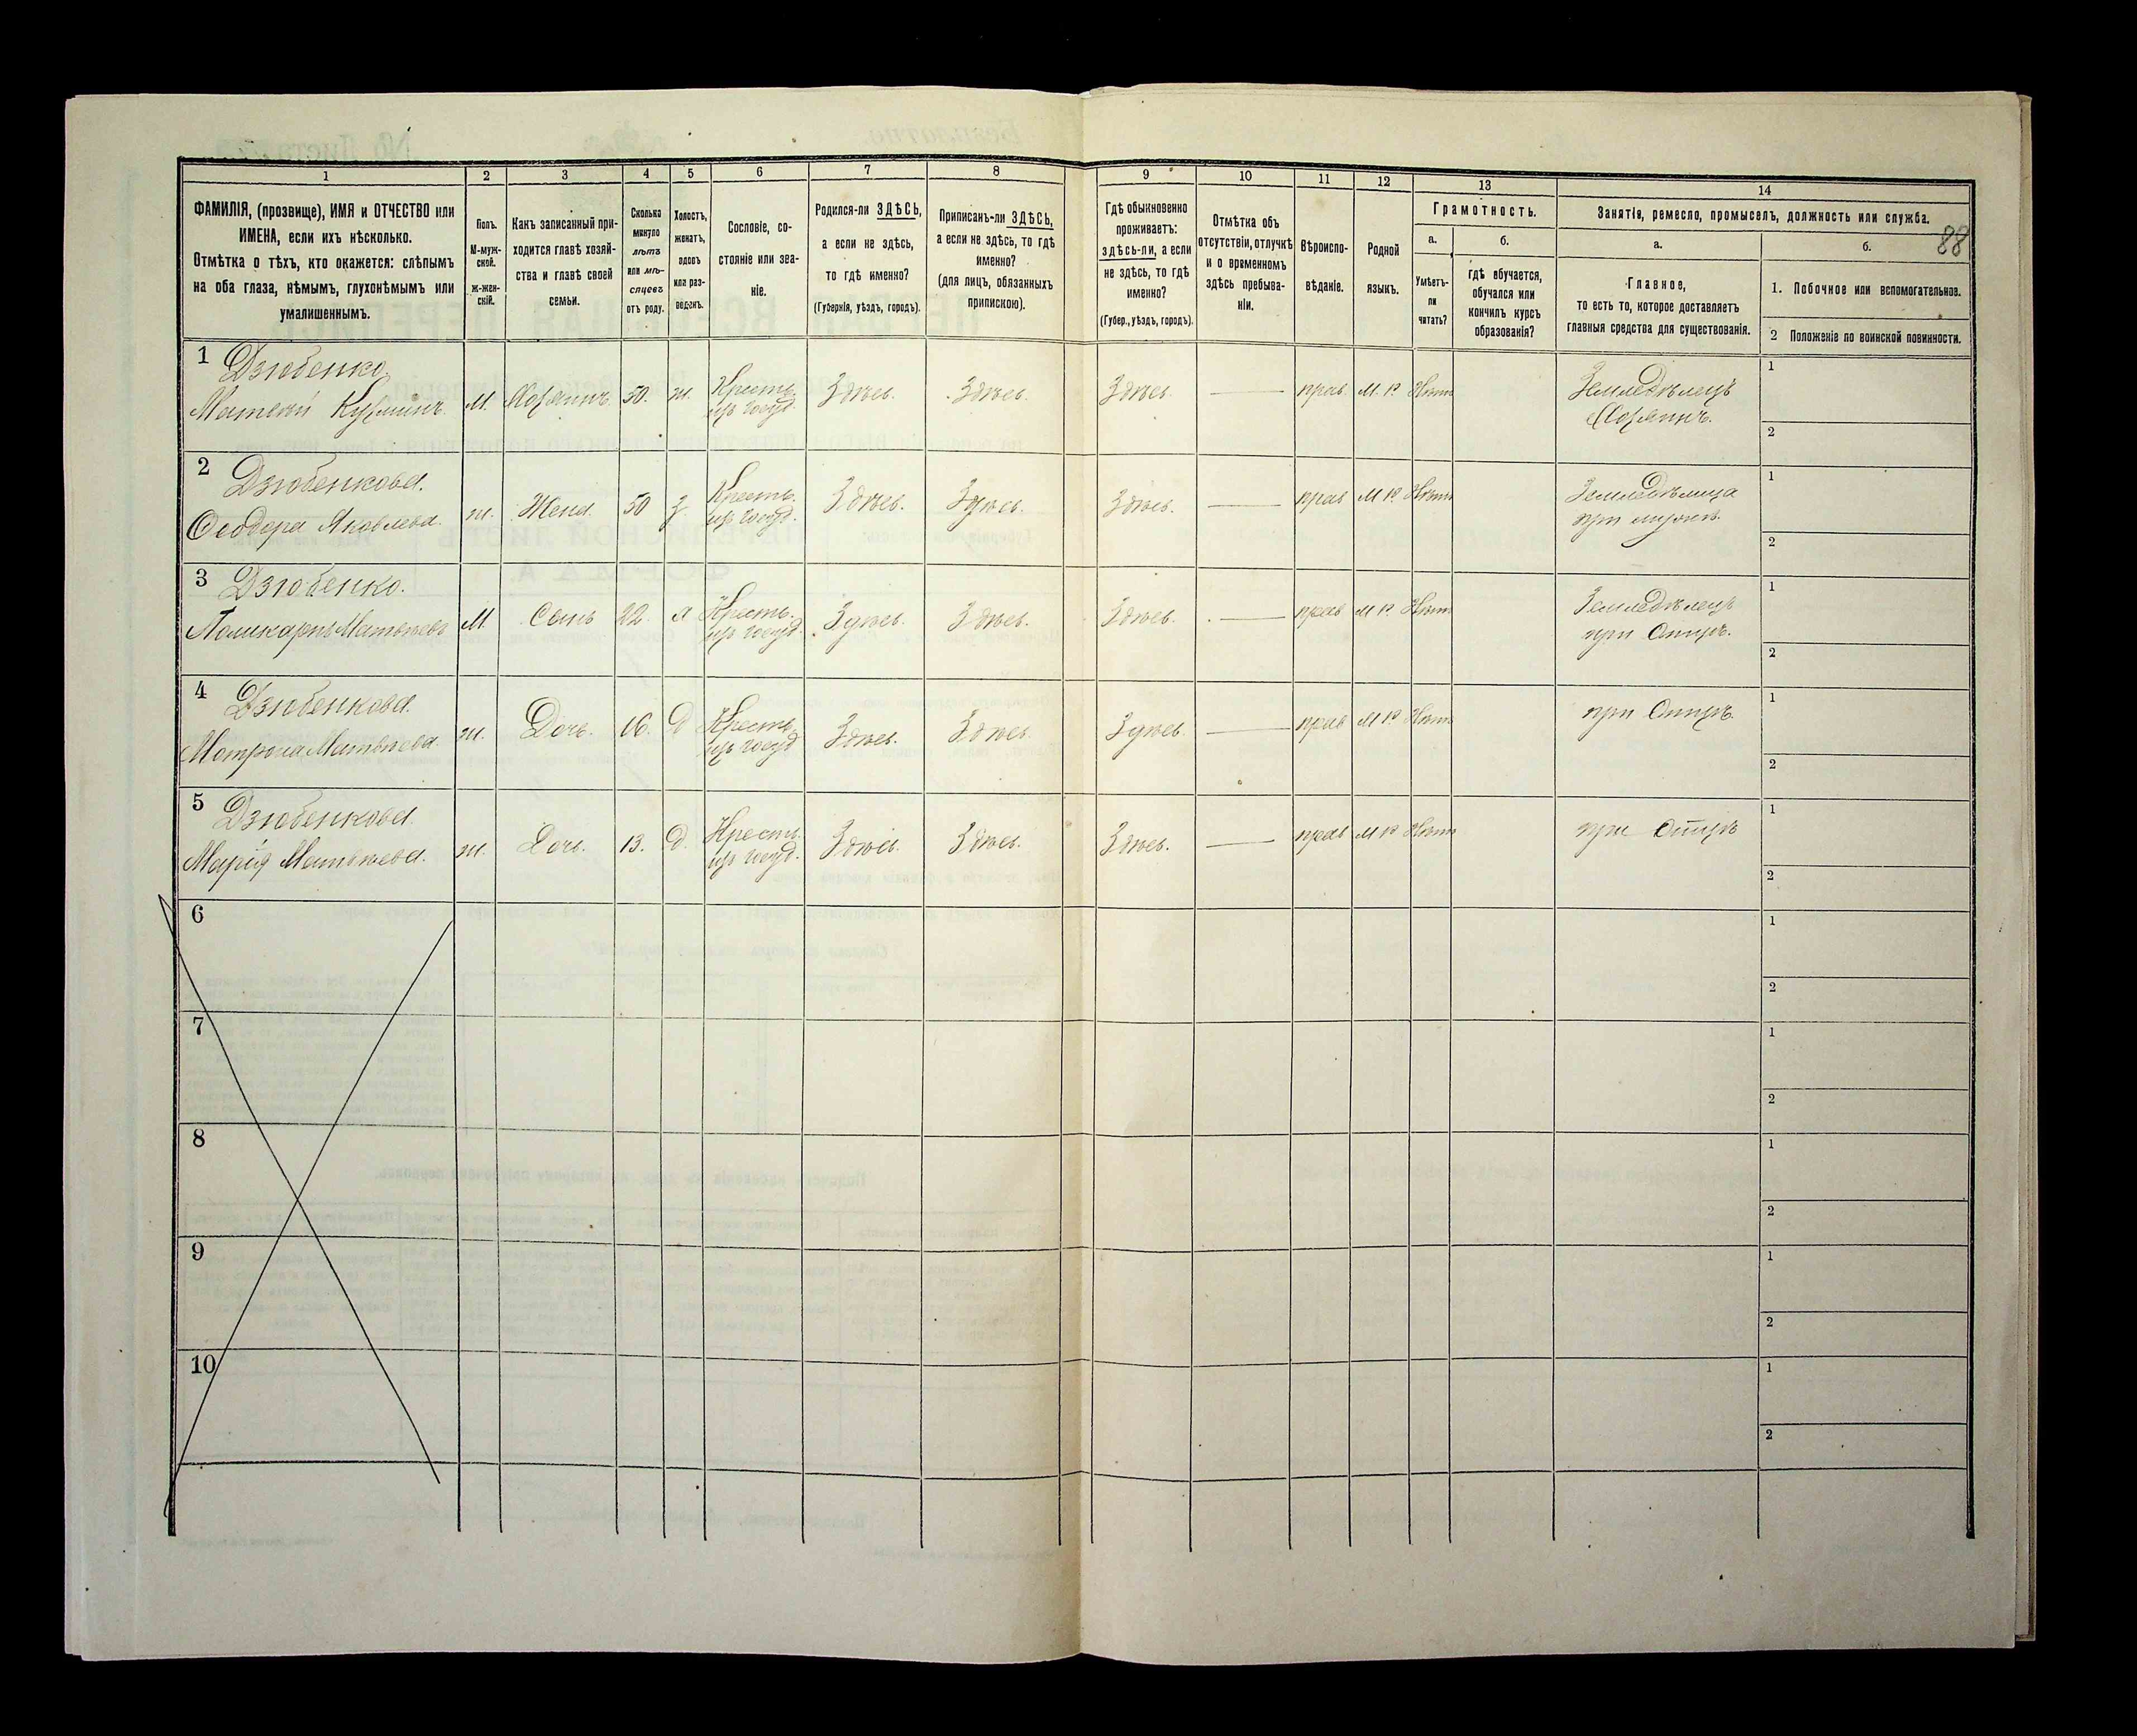 1 2 3 4 5 6 7 8 9 10 11 12 13 14
ФАМИЛІЯ, (прозвище), ИМЯ и ОТЧЕСТВО или
ИМЕНА, если ихъ нѣсколько.
Отмѣтка о тѣхъ, кто окажется: слѣпымъ
на оба глаза, нѣмымъ, глухонѣмымъ или
умалишеннымъ.
Полъ.
М-муж-
ской.
Ж-жен-
скій.
Какъ записанный при-
ходится главѣ хозяй-
ства и главѣ своей
семьи.
Сколько
минуло
лѣтъ
или мѣ-
сяцевъ
отъ роду.
Холостъ,
женатъ,
вдовъ
или раз-
веденъ.
Сословіе, со-
стояніе или зва-
ніе.
Родился-ли ЗДѢСЬ,
а если не здѣсь,
то гдѣ именно?
(Губернія, уѣздъ, городъ).
Приписанъ-ли ЗДѢСЬ,
а если не здѣсь, то гдѣ
именно?
(для лицъ, обязанныхъ
припискою).
Гдѣ обыкновенно
проживаетъ:
здѣсь-ли, а если
не здѣсь, то гдѣ
именно?
(Губер., уѣздъ, городъ).
Отмѣтка объ
отсутствіи, отлучкѣ
и о временномъ
здѣсь пребыва-
ніи.
Вѣроиспо-
вѣданіе.
Родной
языкъ.
Грамотность.
а.
Умѣетъ-
ли
читать?
б.
гдѣ обучается,
обучался или
кончилъ курсъ
образованія?
Занятія, ремесло, промыселъ, должность или служба.
88
а.
Главное,
то есть то, которое доставляетъ
главныя средства для существованія.
б.
1. Побочное или вспомогательное.
2 Положеніе по воинской повинности.
1 Дзюбенко
Матвей Кузминъ. М. Хозяинъ. 50. ж. Кресть. Здѣсь. Здѣсь. Здѣсь. — прав. М. р. Нѣтъ Земледѣлецъ 1
изъ госуд. Хозяинъ. 2
2 Дзюбенкова.
Феодора Яковлева. ж. Жена. 50 з Кресть. Здѣсь. Здѣсь. Здѣсь. — прав М р. Нѣтъ Земледѣлица 1
изъ госуд. при мужѣ. 2
3 Дзюбенко.
Поликарпъ Матвѣевъ М Сынъ 22. х Кресть. Здѣсь. Здѣсь. Здѣсь. — прав М р Нѣтъ Земледѣлецъ 1
изъ госуд. при Отцѣ. 2
4 Дзюбенкова.
Матрона Матвѣева. ж. Дочь. 16. д Кресть. Здѣсь. Здѣсь. Здѣсь. — прав М р Нѣтъ при Отцѣ. 1
изъ госуд 2
5 Дзюбенкова.
Марія Матвѣева. ж. Дочь. 13. д. Кресть. Здѣсь. Здѣсь. Здѣсь. — прав М р Нѣтъ при Отцѣ 1
изъ госуд. 2
6 1
2
7 1
2
8 1
2
9 1
2
10 1
2